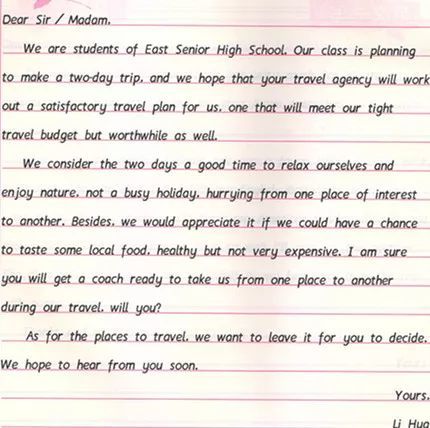 Dear Sir / Madam,
We are students of East Senior High School. Our class is planning
to make a two-day trip, and we hope that your travel agency will work
out a satisfactory travel plan for us, one that will meet our tight
travel budget but worthwhile as well.
We consider the two days a good time to relax ourselves and
enjoy nature, not a busy holiday, hurrying from one place of interest
to another. Besides, we would appreciate it if we could have a chance
to taste some local food, healthy but not very expensive. I am sure
you will get a coach ready to take us from one place to another
during our travel, will you?
As for the places to travel, we want to leave it for you to decide.
We hope to hear from you soon.
Yours,
Li Hua